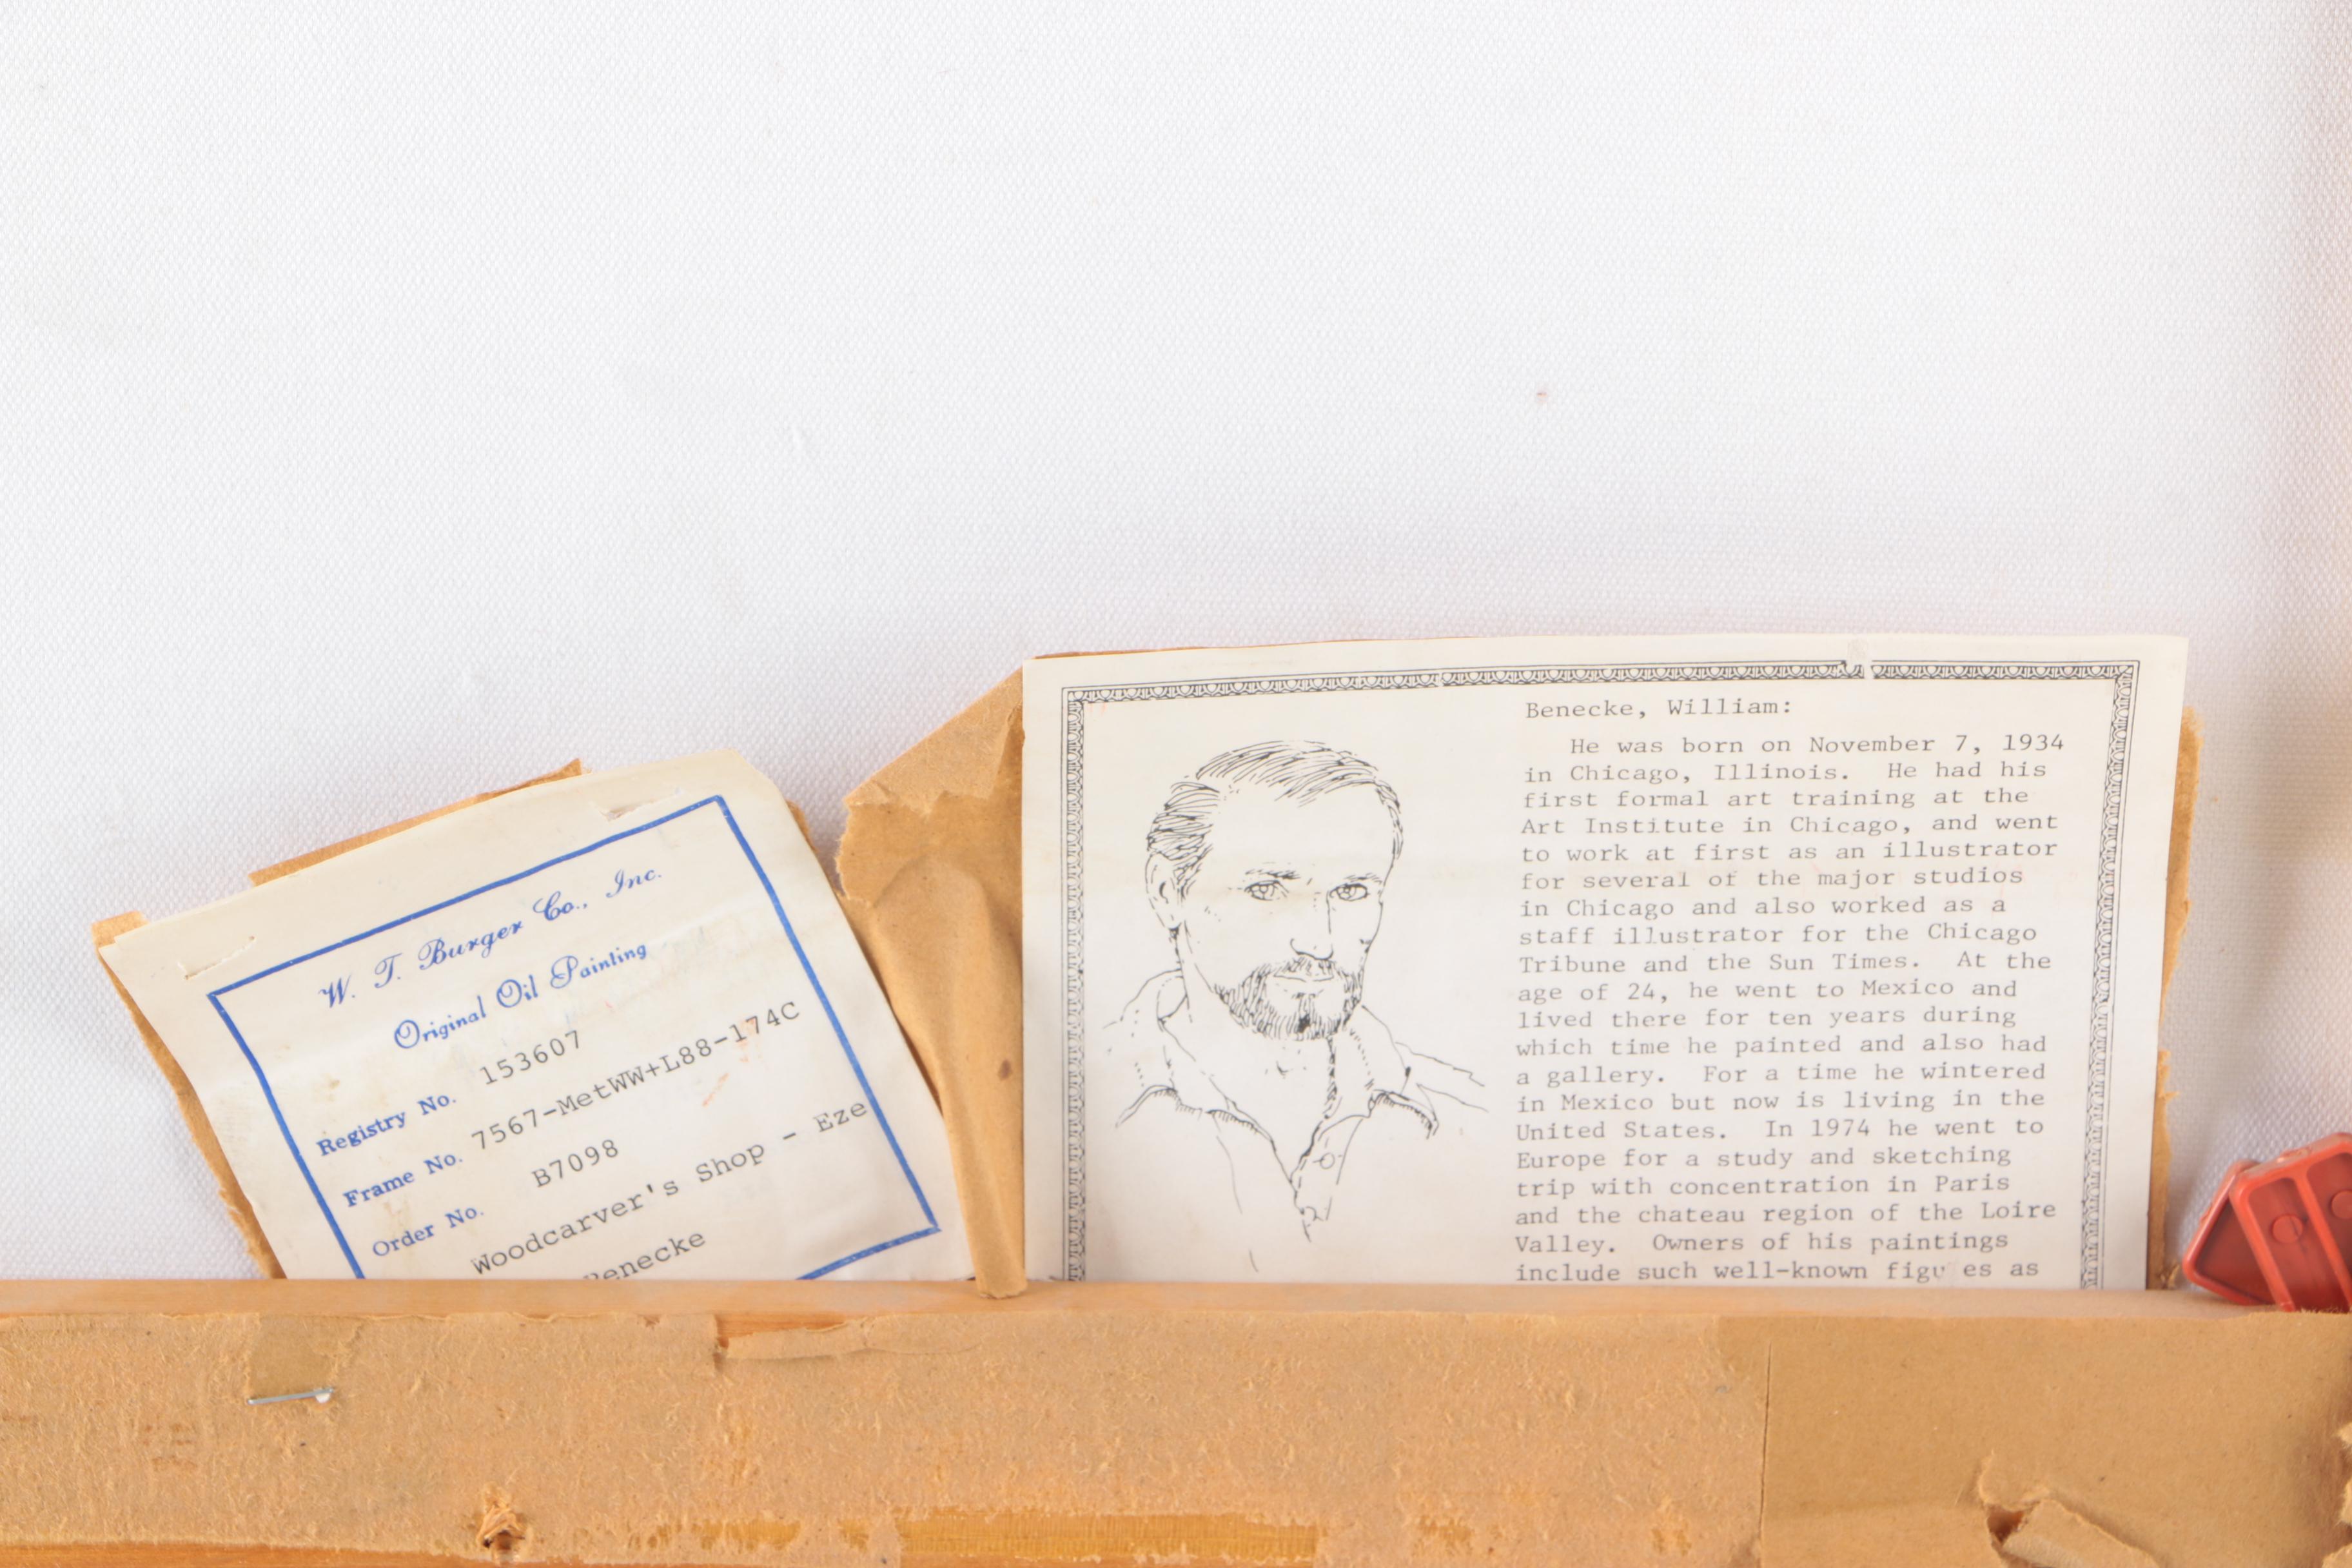 W. T. Burger Co., Inc.
Original Oil Painting
Registry No. 153607
Frame No. 7567-MetWW+L88-174C
Order No. B7098
Woodcarver's Shop - Eze
Benecke
Benecke, William:
He was born on November 7, 1934
in Chicago, Illinois. He had his
first formal art training at the
Art Institute in Chicago, and went
to work at first as an illustrator
for several of the major studios
in Chicago and also worked as a
staff illustrator for the Chicago
Tribune and the Sun Times. At the
age of 24, he went to Mexico and
lived there for ten years during
which time he painted and also had
a gallery. For a time he wintered
in Mexico but now is living in the
United States. In 1974 he went to
Europe for a study and sketching
trip with concentration in Paris
and the chateau region of the Loire
Valley. Owners of his paintings
include such well-known figures as